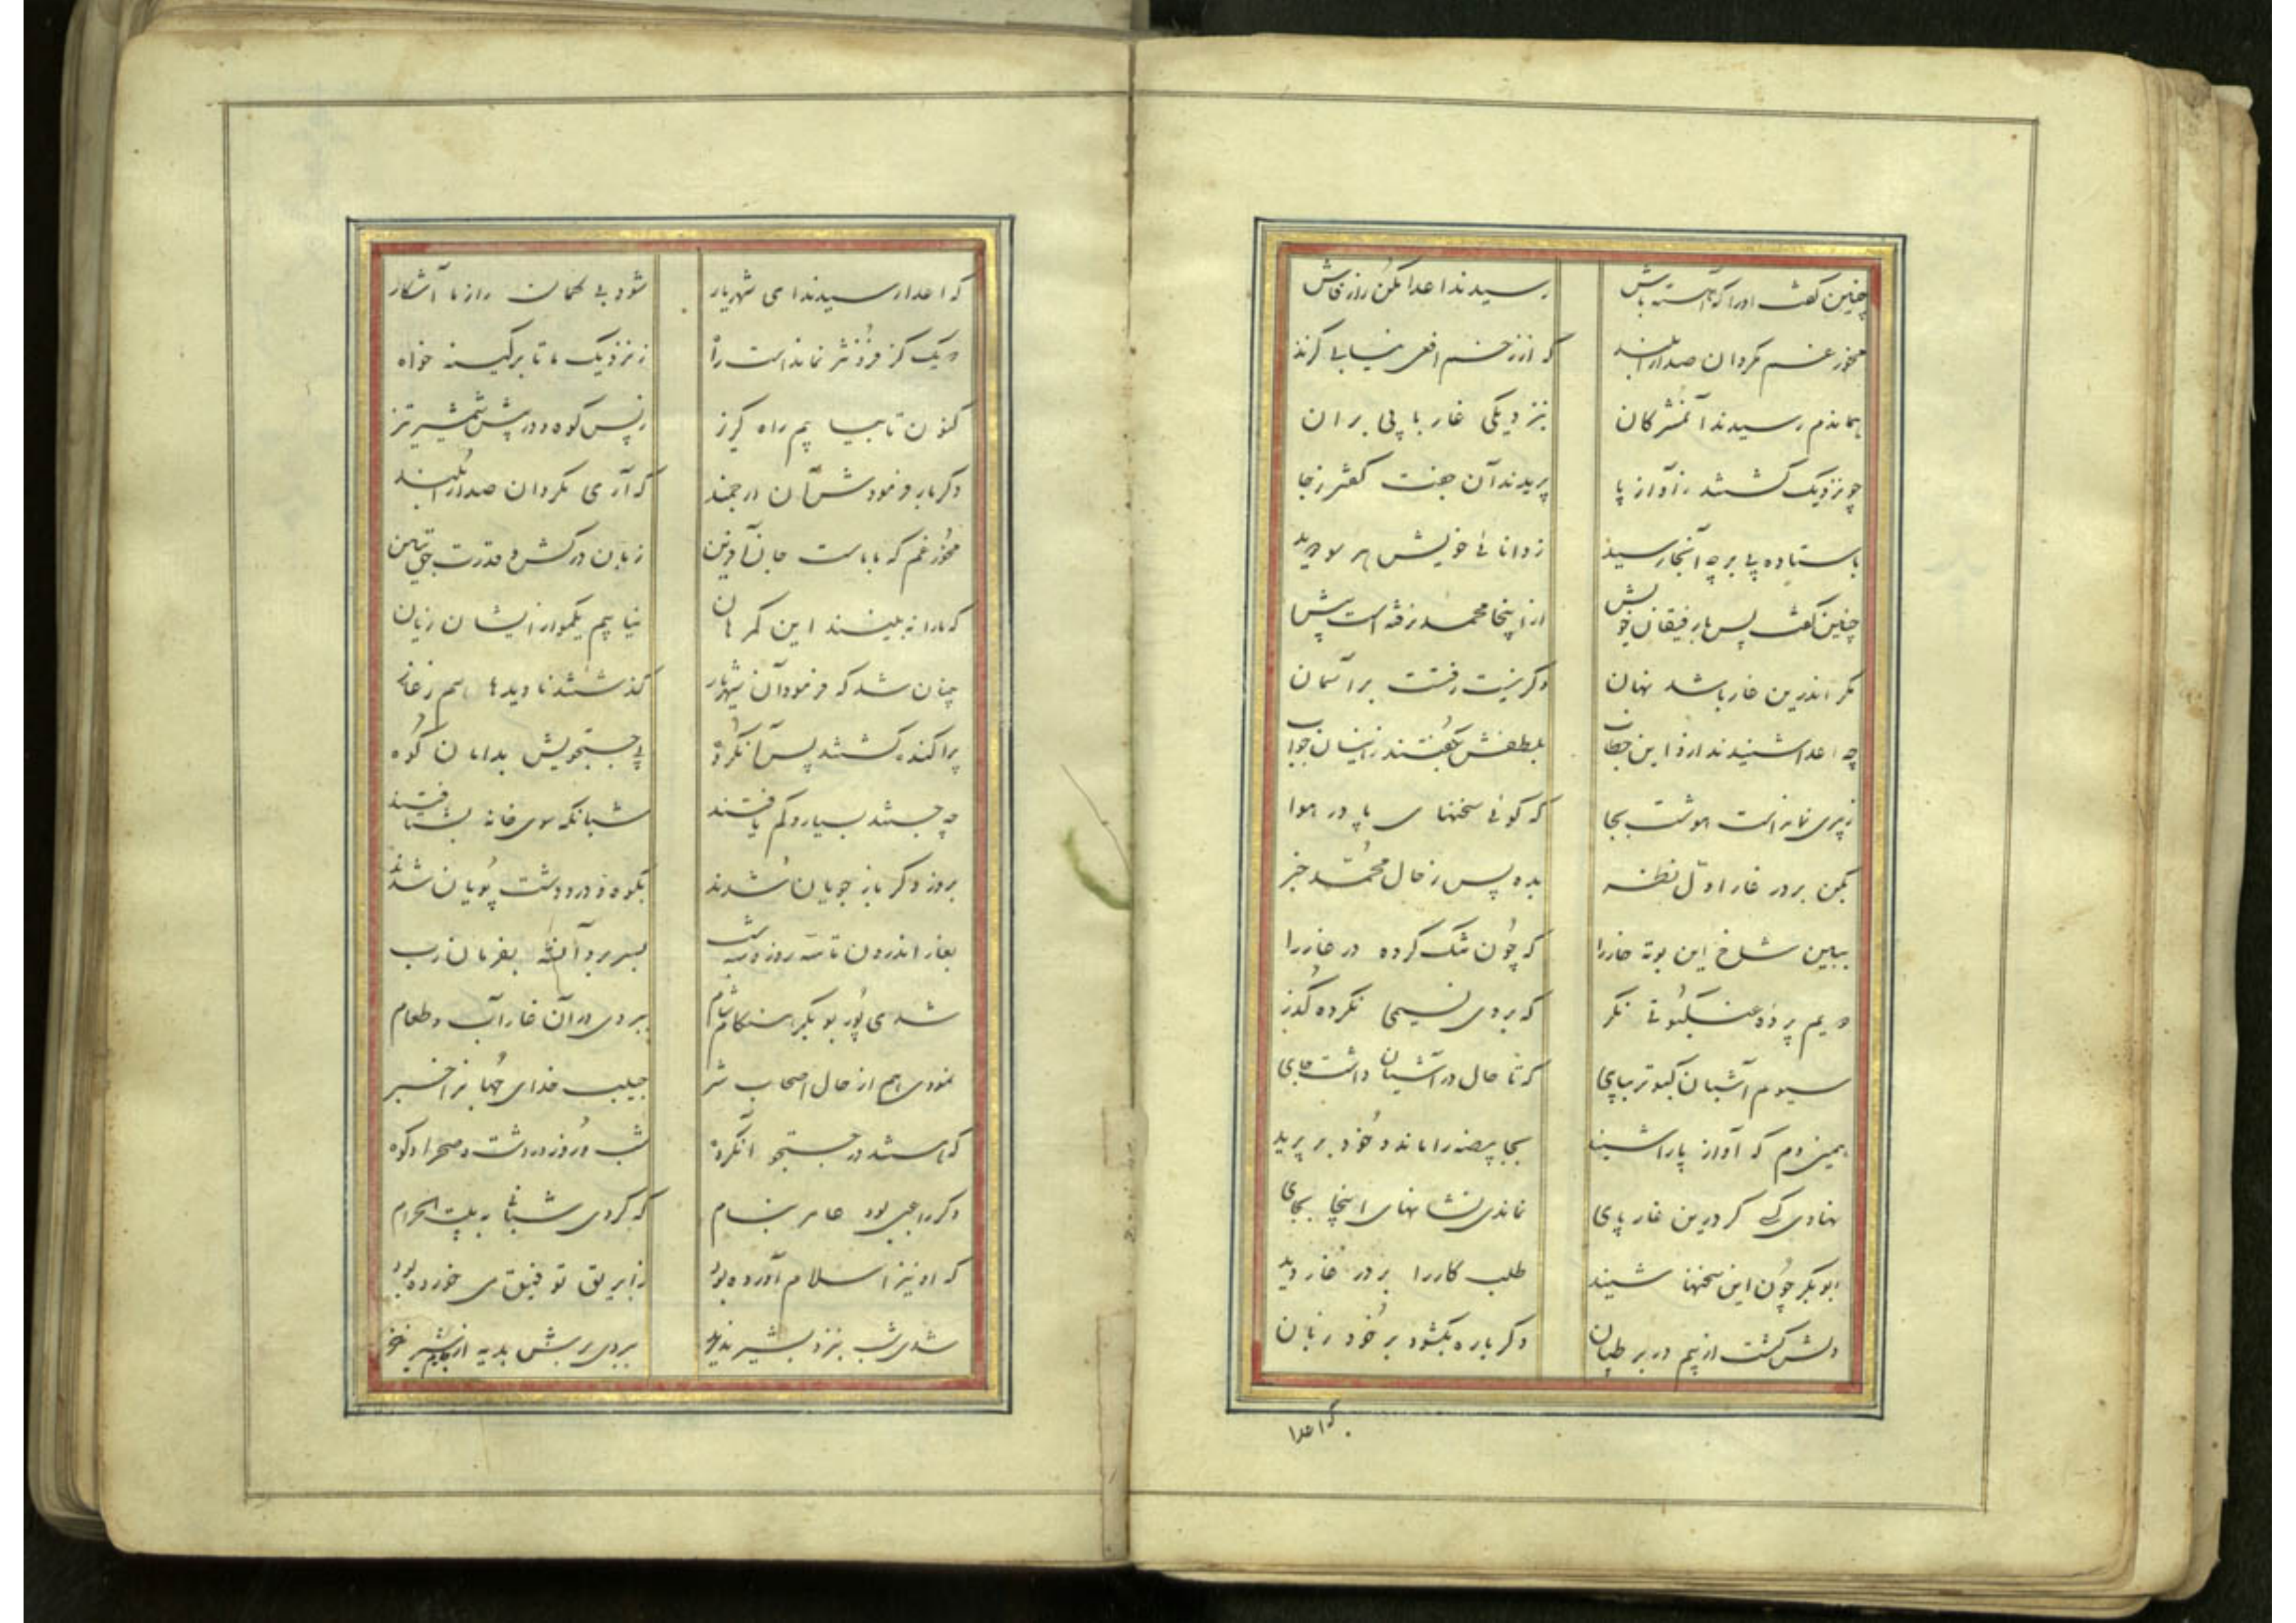 چنین گفت اورا که آهسته باش رسیدند اعدا مکن راز فاش
مخور غم مگردان صدا را بلند که از زخم افعی نیابی گزند
بماندم رسیدند آن مشرکان بنزدیکی غار با پی بران
چو نزدیک گشتند ز آواز پا پریدند آن جفت کفتر ز جا
باستاده پی بر چه آنجا رسید ز دانائی خویش هر سو دید
چنین گفت پس با رفیقان خویش از اینجا محمد نرفته است پیش
مگر اندرین غار باشد نهان وگر نیست رفتت بر آسمان
چه اعدا شنیدند ازو این خطاب بلطفش بگفتند زاینسان جواب
ز پیری نمانداست هوشت بجا که گوئی سخنهای پا در هوا
بکن بر در غار اول نظر بده پس ز حال محمد خبر
ببین شاخ این بوته خار را که چون تنگ کرده در غار را
دویم پرده عنکبوتی نگر که بر وی نسیمی نکرده گذر
سیوم آشیان کبوتر بپای که تا حال در آشیان داشت جای
همین دم که آواز پا را شنید بجا بیضه را ماند و خود بر پرید
نهادی کسی گر درین غار پای نماندی نشانهای اینجا بجای
ابو بکر چون این سخنها شنید طلب کار را بر در غار دید
دلش گشت از بیم در بر طپان دگر باره بگشود بر خود زبان
که اعدا
که اعدا رسیدند ای شهریار شود بی گمان راز ما آشکار
دیک کز فزونتر نمانداست راه ز نزدیک ما تا بر کینه خواه
کنون تا بیابیم راه گریز ز پس کوه و در پیش شمشیر تیز
دگر بار فرمودش آن ارجمند که آری مگردان صدا را بلند
مخور غم که با ماست جان آفرین زبان درکش و قدرت حق ببین
که ما را نه بینند این گمرهان نیابیم یکمو از ایشان زیان
چنان شد که فرمود آن شهریار گذشتند نادیده هم ز غار
پراکنده گشتند پس آن گروه پی جستجویش بدامان کوه
چه جستند بسیار و کم یافتند شبانگه سوی خانه بشتافتند
بروز دگر باز جویان شدند بکوه و در و دشت پویان شدند
بغار اندرون تا سه روز و سه شب بسر برد آن شه بفرمان رب
شدی پور بوبکر هنگام شام ببردی در آن غار آب و طعام
نمودی هم از حال اصحاب شر حبیب خدای جهان را خبر
که هستند در جستجو آن گروه شب و روز در دشت و صحرا و کوه
دگر راعیی بود عامر بنام که کردی شبانی به بیت الحرام
که او نیز اسلام آورده بود ز ابریق توفیق می خورده بود
شدی شب بنزد بشیر نذیر ببردی برش هدیه از جام شیر